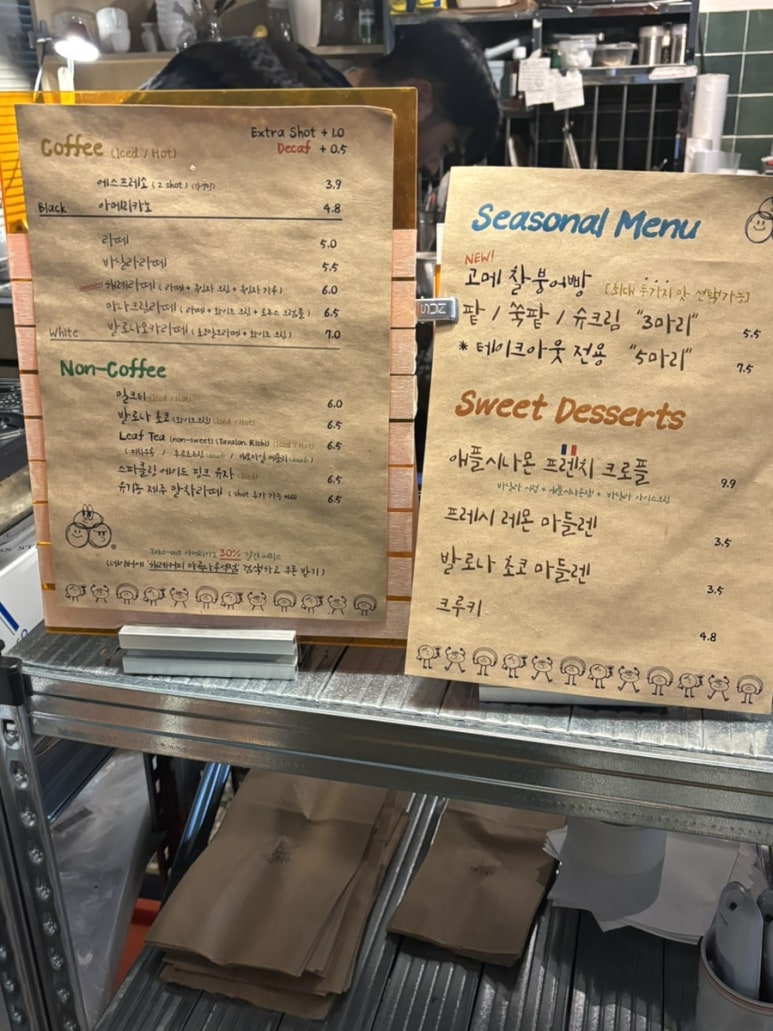 Coffee (Iced / Hot)
Extra Shot + 1.0
Decaf + 0.5
에스프레소 (2 shot) 3.9
Black 아메리카노 4.8
라떼 5.0
바닐라라떼 5.5
해레라떼 6.0
6.5
White 발로나모카라떼 7.0
Non-Coffee
밀크티 (Iced / Hot) 6.0
발로나 초코 (Iced / Hot) 6.5
Leaf Tea (non-sweet) (Tavalon Rishi) (Iced / Hot) 6.5
스파클링 에이드 핑크 유자 (Iced) 6.5
유기농 제주 말차라떼 6.5
Take-out 아메리카노 30%
검색하고 쿠폰 받기)
Seasonal Menu
NEW!
고메 찰붕어빵 [최대 두가지 맛 선택가능]
팥 / 쑥팥 / 슈크림 "3마리" 5.5
* 테이크아웃 전용 "5마리" 7.5
Sweet Desserts
애플시나몬 프렌치 크로플 9.9
프레시 레몬 마들렌 3.5
발로나 초코 마들렌 3.5
크루키 4.8